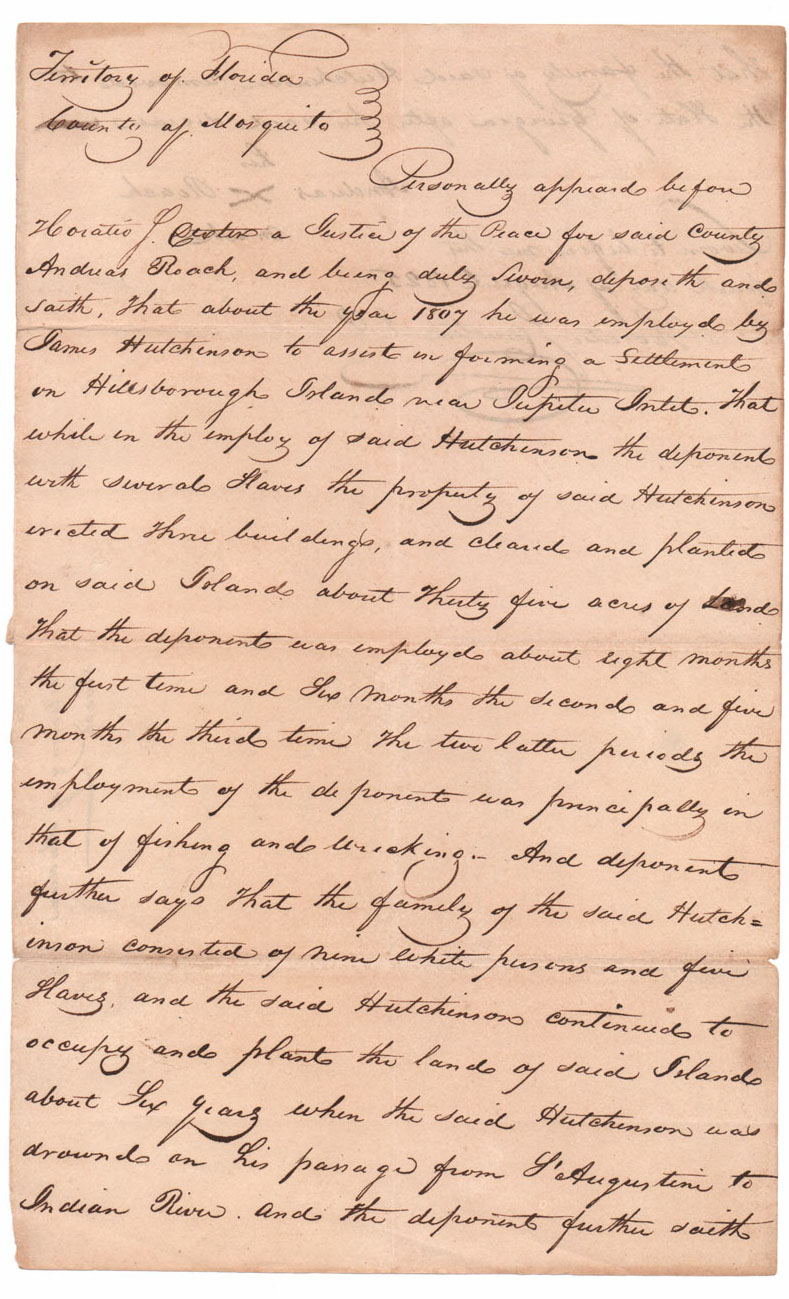 Territory of Florida
County of Mosquito
Personally appeard before
Horatio J. a Justice of the Peace for said County
Andreas Roach, and being duly Sworn, deposeth and
saith, That about the year 1807 he was employd by
James Hutchinson to assist in forming a Settlement
on Hillsborough Island near Jupiter Intet. That
while in the employ of said Hutchinson the deponent
with several Slaves the property of said Hutchinson
erected Three buildings, and cleared and planted
on said Island about Thirty five acres of Land
That the deponent was employd about eight months
the first time and Six months the second and five
months the third time The two latter periods the
employment of the deponent was principally in
that of fishing and wrecking.– And deponent
further says That the family of the said Hutch=
inson consisted of nine white persons and five
Slaves, and the said Hutchinson continued to
occupy and plant the land of said Island
about Six years when the said Hutchinson was
drownd on his passage from St Augustine to
Indian River. And the deponent further saith